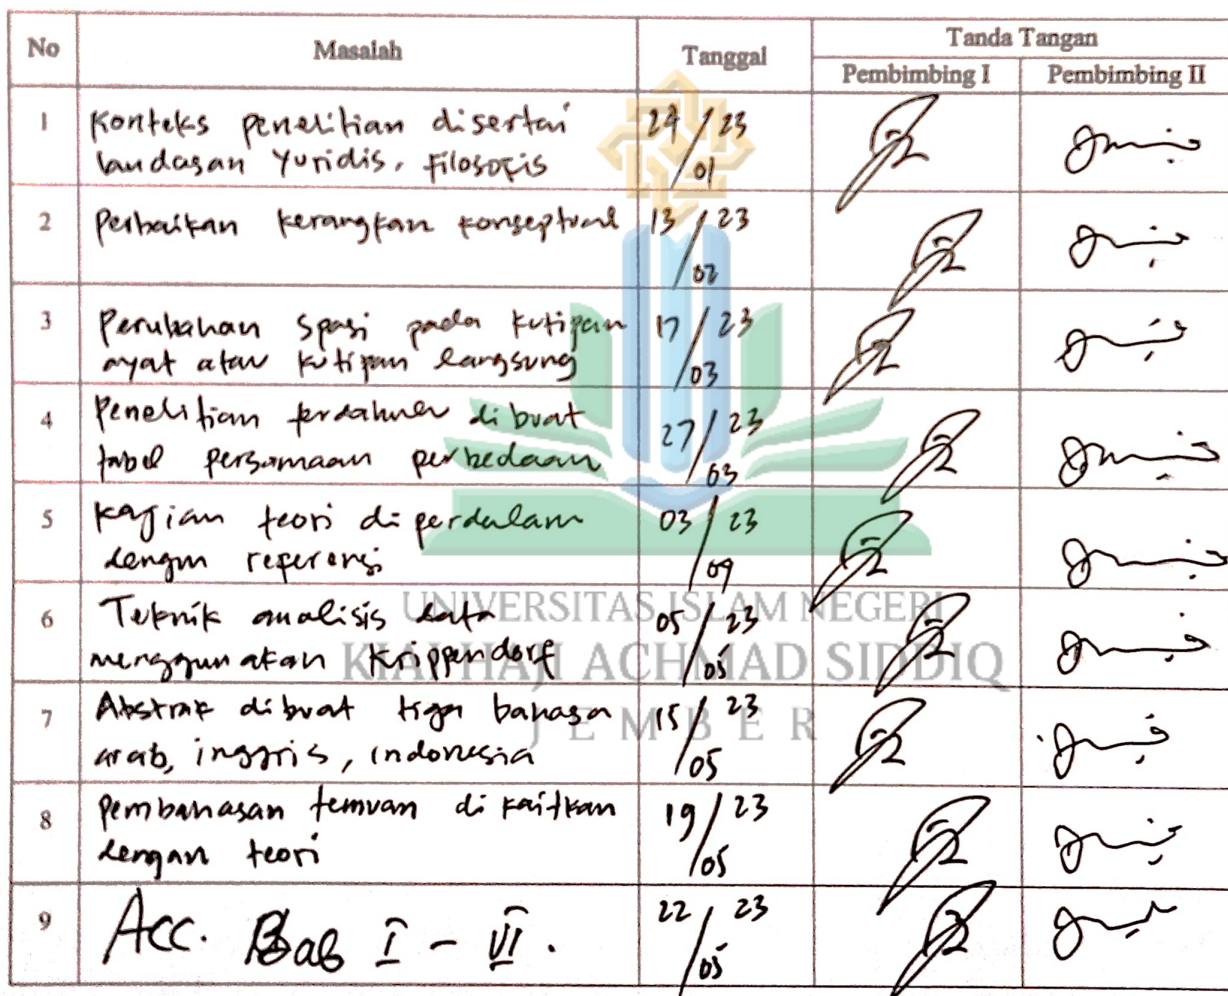 No Masalah Tanggal Tanda Tangan
Pembimbing I Pembimbing II
1 Konteks penelitian disertai 24/23
landasan Yuridis, Filosofis 01
2 Perbaikan kerangkan konseptual 13/23
02
3 Perubahan spasi pada kutipan 17/23
ayat atau kutipan langsung 03
4 Penelitian terdahulu dibuat 27/23
tabel persamaan perbedaan 03
5 Kajian teori diperdalam 03/23
dengan referensi 04
6 Teknik analisis data 05/23
menggunakan Krippendorf 05
7 Abstrak dibuat tiga bahasa 15/23
arab, inggris, indonesia 05
8 pembahasan temuan dikaitkan 19/23
dengan teori 05
9 Acc. Bab I - VI. 22/23
05
UNIVERSITAS ISLAM NEGERI
KIAI HAJI ACHMAD SIDDIQ
JEMBER